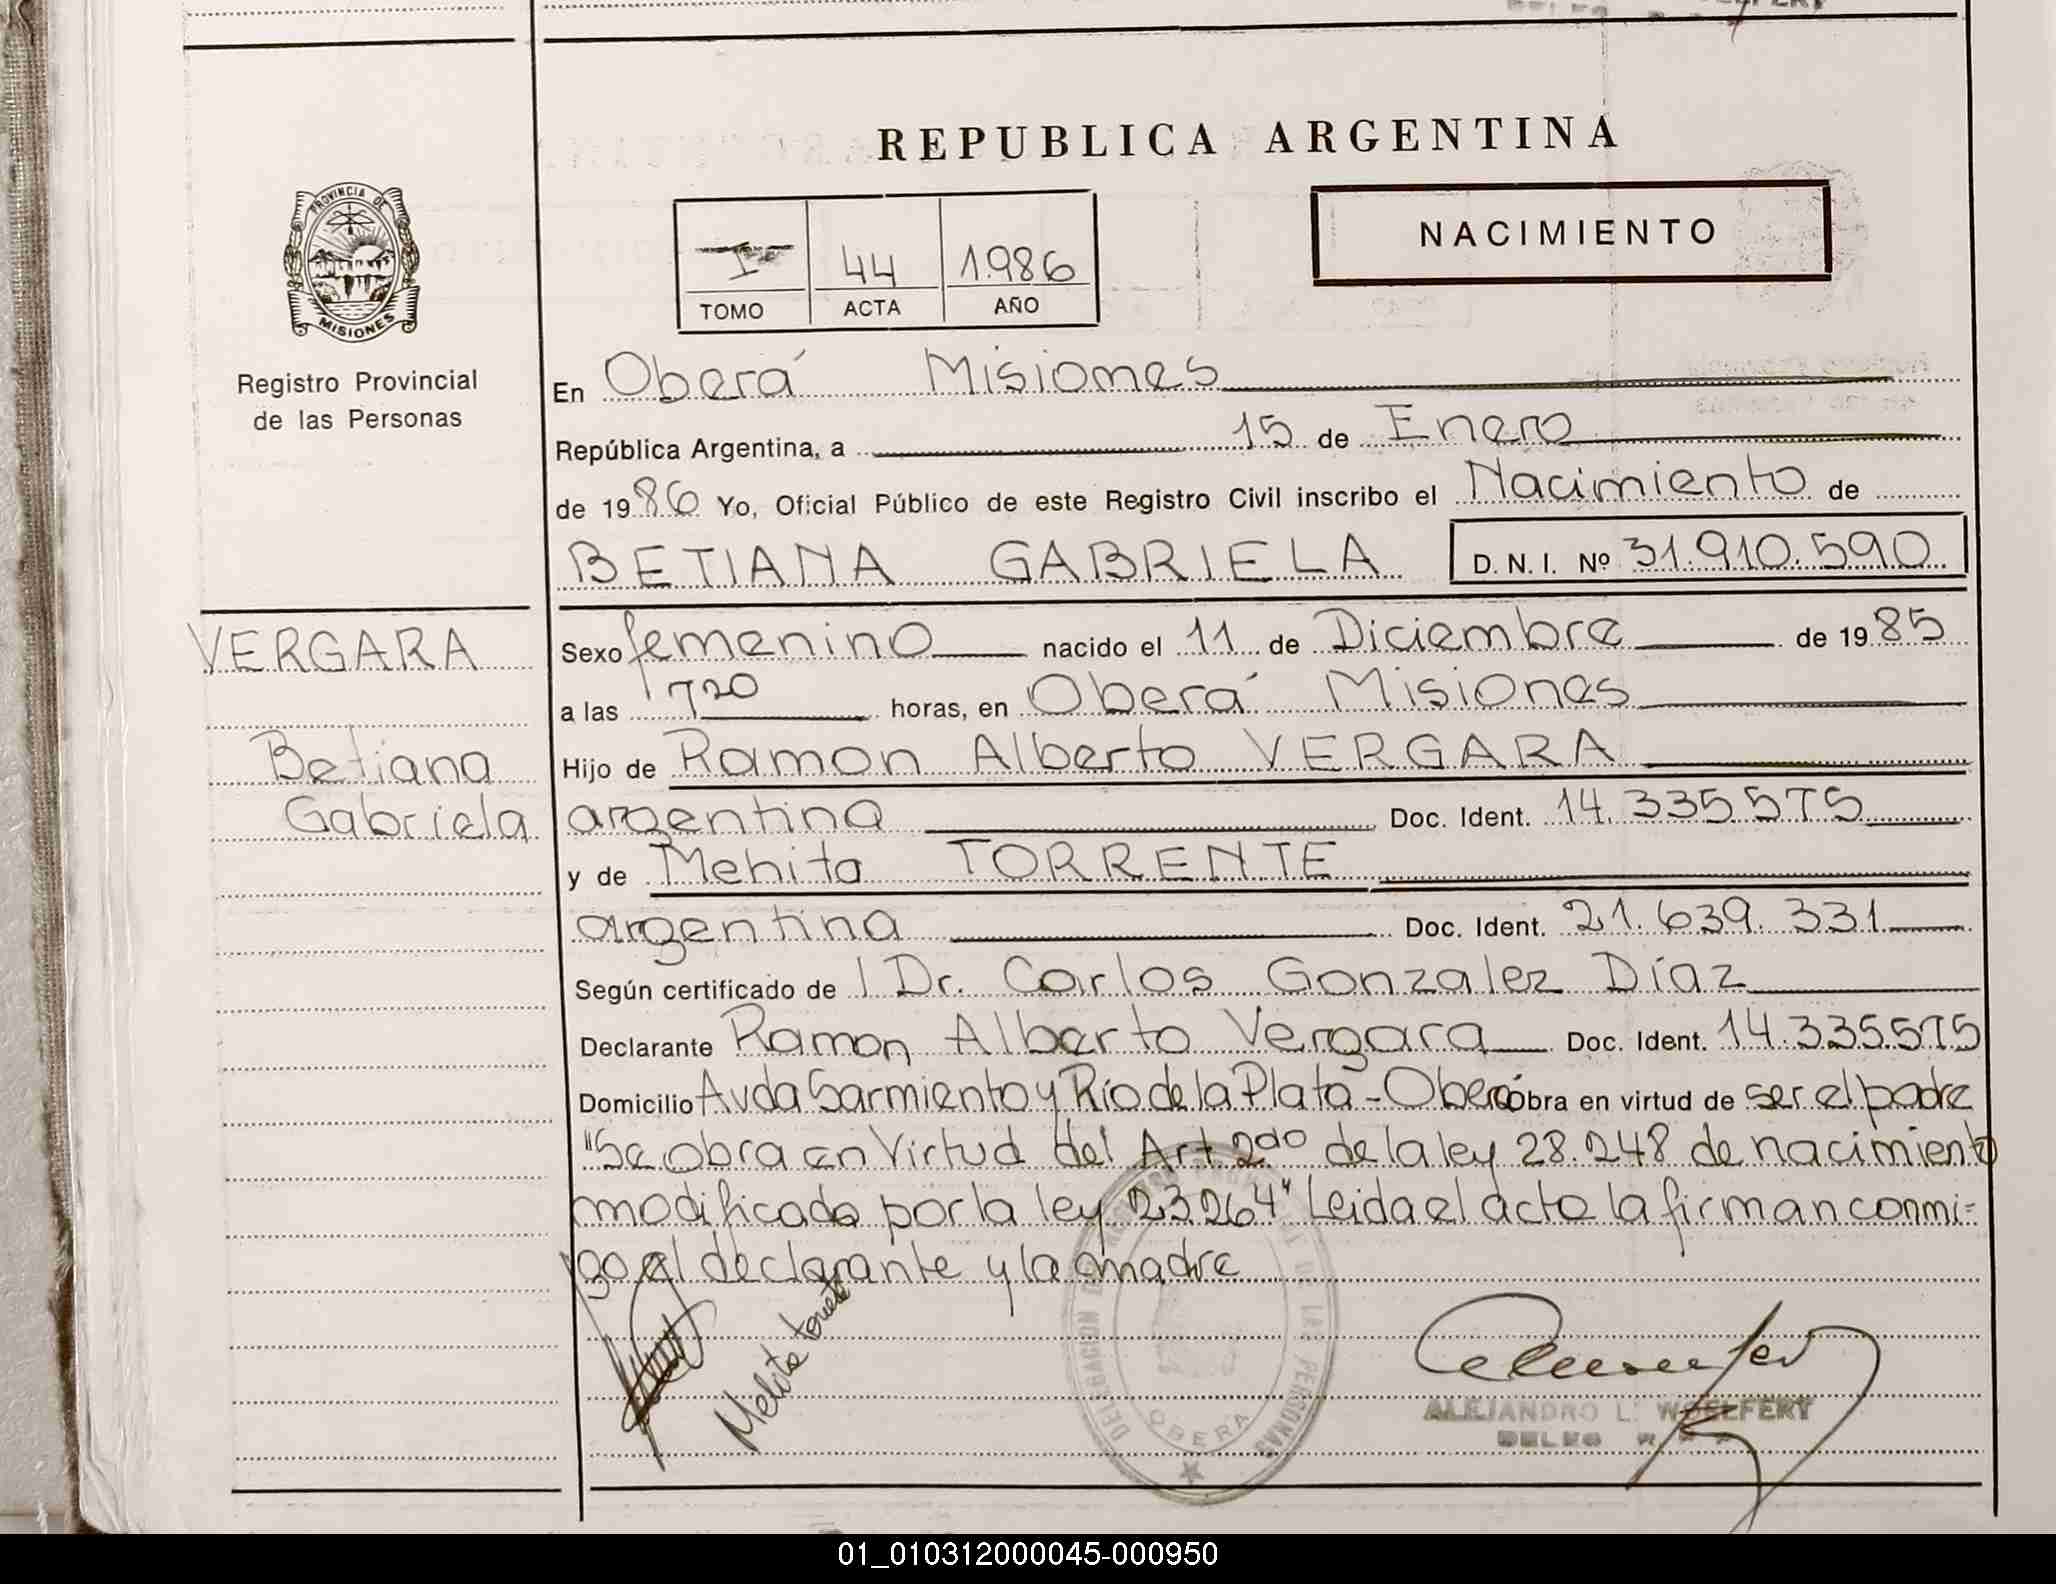 REPUBLICA ARGENTINA
NACIMIENTO
I 44 1.986
TOMO ACTA AÑO
PROVINCIA DE
MISIONES
Registro Provincial
de las Personas
VERGARA
Betiana
Gabriela
En Oberá Misiones
República Argentina, a 15 de Enero
de 1986 Yo, Oficial Público de este Registro Civil inscribo el Nacimiento de
BETIANA GABRIELA D. N. I. Nº 31.910.590
Sexo femenino nacido el 11 de Diciembre de 1985
a las 720 horas, en Oberá Misiones
Hijo de Ramon Alberto VERGARA
argentina Doc. Ident. 14.335575
y de TORRENTE
argentina Doc. Ident. 21.639.331
Según certificado de l Dr. Carlos Gonzalez Díaz
Declarante Ramon Alberto Vergara Doc. Ident. 14.335.575
Domicilio Avda Sarmiento y Río de la Plata - Oberá obra en virtud de ser el padre
"Se obra en Virtud del Art 2do de la ley 28.248 de nacimiento
modificada por la ley 23264" Leida el acta la firman conmi=
go el declarante y la madre
Melita Torrente
DELEGACION DEL REGISTRO PROVINCIAL DE LAS PERSONAS
OBERA
ALEJANDRO L. WOELFERT
01_010312000045-000950